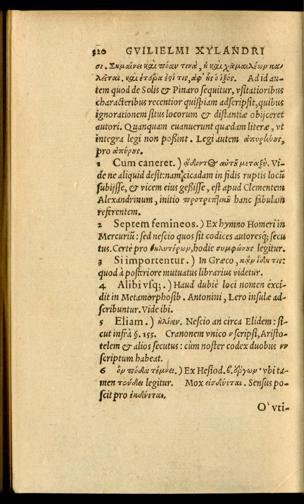 320 GVILIELMI XYLANDRI
σι. Σημαίνει καὶ πόαν τινὰ, ἢ καὶ χαμαιλέων κα-
λεῖται. καὶ ἐτέρα ἐςί τις, ἀφ' ἧς ὁ ἰξός. Ad id au-
tem quod de Solis & Pinaro sequitur, vsitatioribus
characteribus recentior quispiam adscripsit, quibus
ignorationem situs locorum & distantiæ obijceret
autori. Quanquam euanuerunt quædam literæ, vt
integra legi non possint. Legi autem ἀπυρόυς,
pro ἀπύρως.
1 Cum caneret.) ᾄδοντος αὐτοῦ μεταξύ. Vi-
de ne aliquid desit: nam cicadam in fidis ruptis locū
subijsse, & vicem eius gessisse, est apud Clementem
Alexandrinum, initio προτρεπτικοῦ hanc fabulam
referentem.
2 Septem femineos.) Ex hymno Homeri in
Mercuriū: sed nescio quos sit codices autoresq; secu
tus. Certè pro θηλυτέρων, hodie συμφώνους legitur.
3 Si importentur.) In Græco,
quod à posteriore mutuatus librarius videtur.
4 Alibi vsq;.) Haud dubiè loci nomen exci-
dit in Metamorphosib. Antonini, Lero insulæ ad-
scribuntur. Vide ibi.
5 Eliam.) Nescio an circa Elidem: si-
cut infrà §. 155. Crannonem vnico ν scripsi, Aristo-
telem & alios secutus: cùm noster codex duobus νν
scriptum habeat.
6 ὃν πόδα τέμνει.) Ex Hesiod. β. ἔργων· vbi ta-
men legitur. Mox Sensus po-
scit pro
O' vti-